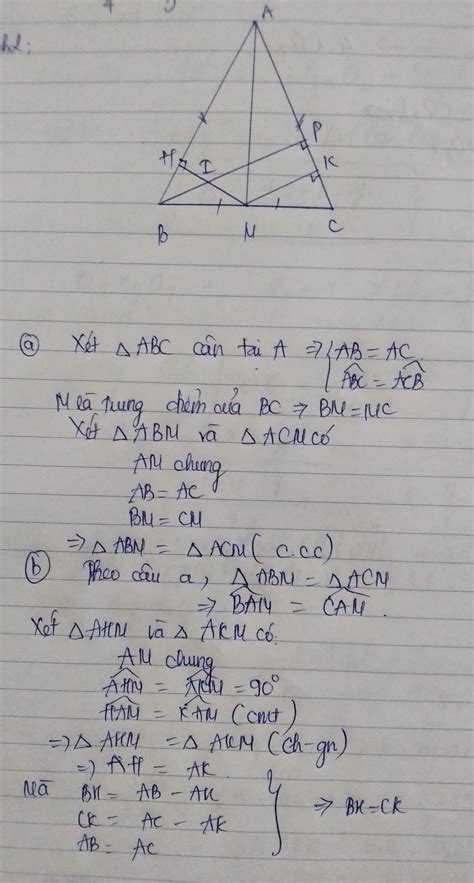 A
H
I
P
K
B
M
C
ⓐ Xét △ ABC cân tại A ⇒ { AB = AC
ABC = ACB
M là trung điểm của BC ⇒ BM = MC
Xét △ ABM và △ ACM có
AM chung
AB = AC
BM = CM
⇒ △ ABM = △ ACM ( C.C.C)
ⓑ Theo câu a, △ ABM = △ ACM
⇒ BAM = CAM.
Xét △ AHM và △ AKM có:
AM chung
AHM = AKM = 90°
HAM = KAM (cmt)
⇒ △ AHM = △ AKM (ch-gn)
⇒ AH = AK
Mà BH = AB - AH
CK = AC - AK } ⇒ BH = CK
AB = AC